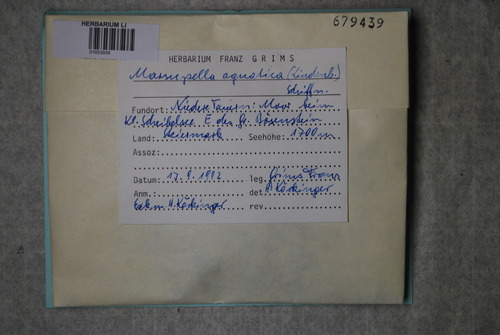 HERBARIUM LI
679439
HERBARIUM FRANZ GRIMS
Marsupella aquatica (Lindenb.)
Schiffn.
Fundort: Niedere Tauern: Moor beim
Kl. Scheiblsee E des gr. Bösenstein
Land: Steiermark Seehöhe: 1700 m
Assoz:
Datum: 17.9.1992 leg. Grims Franz
Anm.: det. H. Köckinger
Exk. m. H. Köckinger rev.